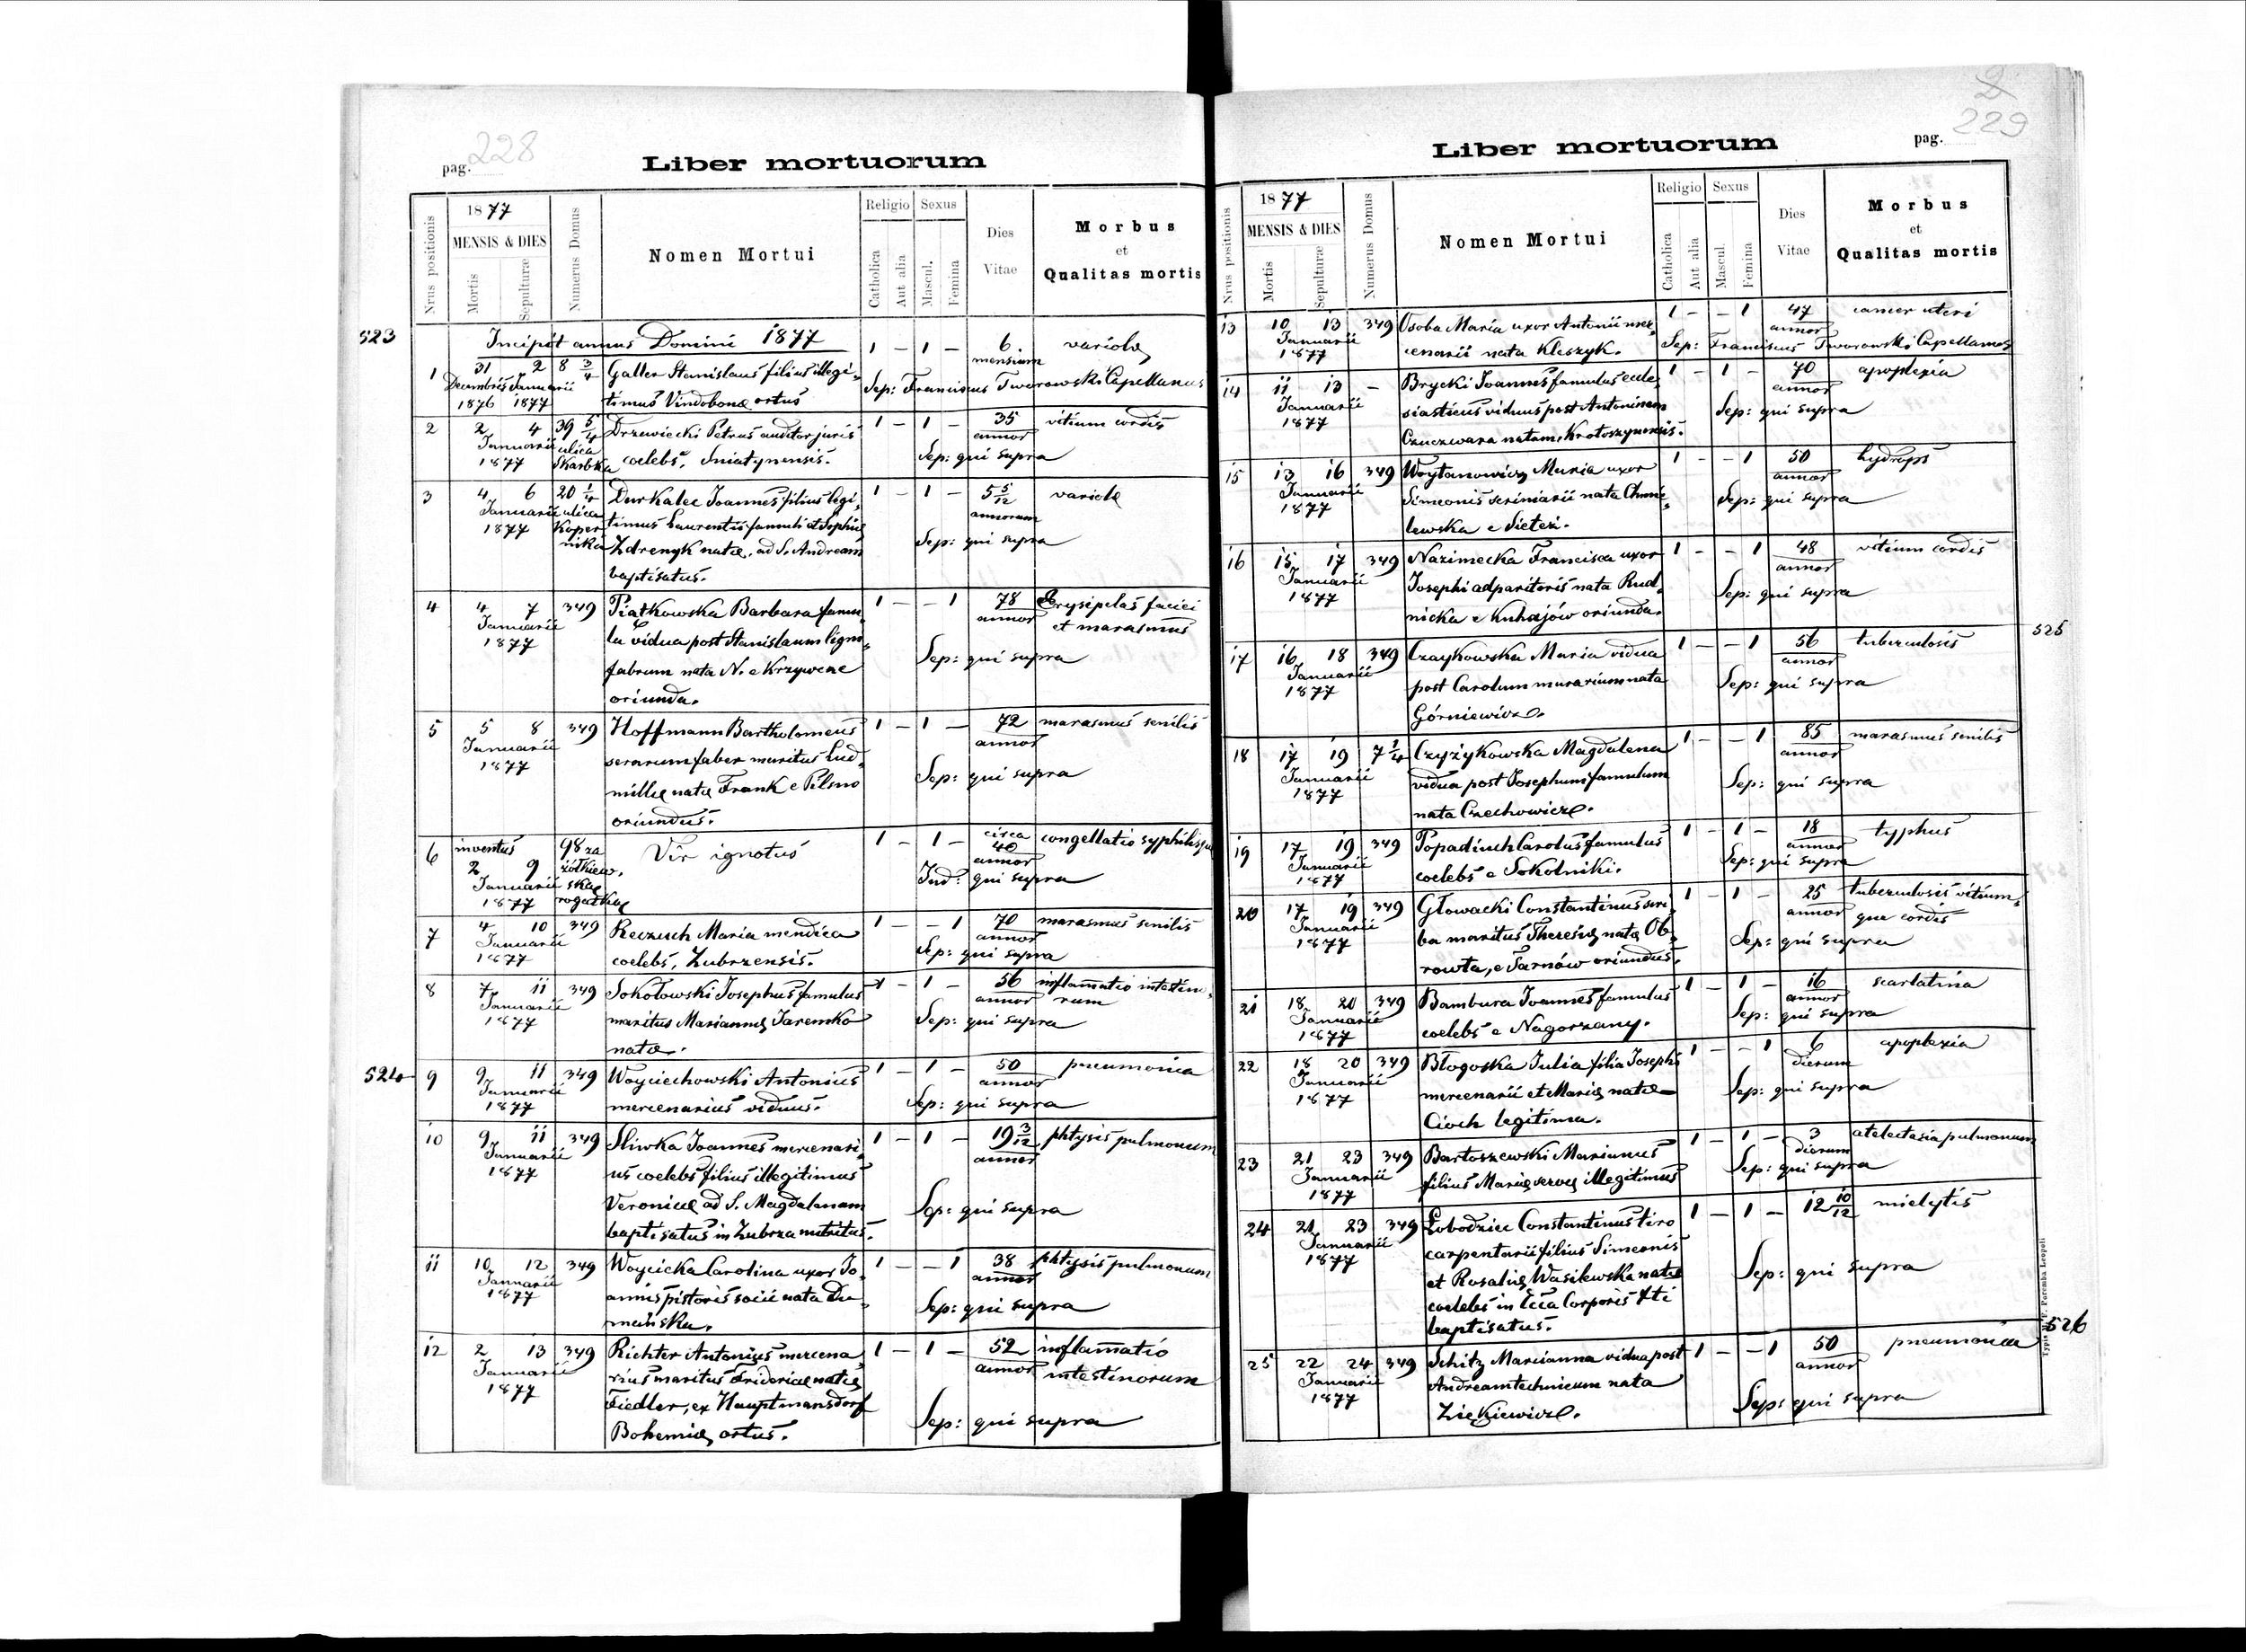 228
pag.
Liber mortuorum
Nrus positionis
1877
MENSIS & DIES
Mortis
Sepulturæ
Numerus Domus
Nomen Mortui
Religio
Catholica
Aut alia
Sexus
Mascul.
Femina
Dies
Vitae
Morbus
et
Qualitas mortis
523
Incipit annus Domini 1877
1 31 2 8 3/4 Galler Stanislaus filius illegi- 1 – 1 – 6 variola
Decembris Januarii mensium
1876 1877 timus Vindobonæ ortus Sep: Franciscus Tworowski Capellanus
2 2 4 39 5/4 Drzewiecki Petrus auditor juris 1 – 1 – 35 vitium cordis
Januarii ulica annor
1877 Skarbka coelebs, Sniatynensis. Sep: qui supra
3 4 6 20 1/4 Durkalec Joannes filius legi- 1 – 1 – 5 5/12 variola
Januarii ulica annorum
1877 Koper timus Laurentii famuli et Sophiæ
nika Zdrenyk natæ, ad S. Andream Sep: qui supra
baptisatus.
4 4 7 349 Piatkowska Barbara famu- 1 – – 1 78 Erysipelas faciei
Januarii annor et marasmus
1877 la vidua post Stanislaum ligni-
fabrum nata N. e Krzywcze Sep: qui supra
oriunda.
5 5 8 349 Hoffmann Bartholomeus 1 – 1 – 72 marasmus senilis
Januarii annor
1877 serarum faber maritus Lud-
millæ natæ Frank e Pilsno Sep: qui supra
oriundus.
6 inventus 98 za Vir ignotus 1 – 1 – circa 40 congellatio syphilisque
2 9 żółkiew- annor
Januarii ską Ind: qui supra
1877 rogatką
7 4 10 349 Reczuch Maria mendica 1 – – 1 70 marasmus senilis
Januarii annor
1877 coelebs, Zubrzensis. Sep: qui supra
8 7 11 349 Sokołowski Josephus famulus 1 – 1 – 56 inflamatio intestino-
Januarii annor rum
1877 maritus Mariannæ Jaremko Sep: qui supra
natæ.
524
9 9 11 349 Woyciechowski Antonius 1 – 1 – 50 pneumonica
Januarii annor
1877 mercenarius viduus. Sep: qui supra
10 9 11 349 Sliwka Joannes mercenari- 1 – 1 – 19 3/12 phtysis pulmonum
Januarii annor
1877 us coelebs filius illegitimus
Veronicæ ad S. Magdalenam Sep: qui supra
baptisatus in Zubrza nutritus.
11 10 12 349 Woycicka Carolina uxor Jo- 1 – – 1 38 phtysis pulmonum
Januarii annor
1877 annis pistoris socii nata Du- Sep: qui supra
mańska.
12 2 13 349 Richter Antonius mercena- 1 – 1 – 52 inflamatio
Januarii annor intestinorum
1877 rius maritus Fridericæ natæ
Fiedler, ex Hauptmansdorf Sep: qui supra
Bohemiæ ortus.
2
229
Liber mortuorum
pag.
Nrus positionis
1877
MENSIS & DIES
Mortis
Sepulturæ
Numerus Domus
Nomen Mortui
Religio
Catholica
Aut alia
Sexus
Mascul.
Femina
Dies
Vitae
Morbus
et
Qualitas mortis
13 10 13 349 Osoba Maria uxor Antonii mer- 1 – – 1 47 cancer uteri
Januarii annor
1877 cenarii nata Kleszyk. Sep: Franciscus Tworowski Capellanus
14 11 13 – Brycki Joannes famulus eccle- 1 – 1 – 70 apoplexia
Januarii annor
1877 siasticus viduus post Antoninam Sep: qui supra
Czuczwara natam, Krotoszynensis.
15 13 16 349 Woytanowicz Maria uxor 1 – – 1 50 hydrops
Januarii annor
1877 Simeonis scriniarii nata Chmie- Sep: qui supra
lewska e Sietesz.
16 15 17 349 Nazimecka Francisca uxor 1 – – 1 48 vitium cordis
Januarii annor
1877 Josephi adparitoris nata Rud- Sep: qui supra
nicka e Kuhajów oriunda.
525
17 16 18 349 Czaykowska Maria vidua 1 – – 1 56 tuberculosis
Januarii annor
1877 post Carolum murarium nata Sep: qui supra
Górniewicz.
18 17 19 7 1/4 Czyżykowska Magdalena 1 – – 1 85 marasmus senilis
Januarii annor
1877 vidua post Josephum famulum Sep: qui supra
nata Czechowicz.
19 17 19 349 Popadiuch Carolus famulus 1 – 1 – 18 typhus
Januarii annor
1877 coelebs e Sokolniki. Sep: qui supra
20 17 19 349 Głowacki Constantinus scri- 1 – 1 – 25 tuberculosis vitium-
Januarii annor que cordis
1877 ba maritus Theresiæ natæ Ob- Sep: qui supra
rowta, e Tarnów oriundus.
21 18 20 349 Bambura Joannes famulus 1 – 1 – 16 scarlatina
Januarii annor
1877 coelebs e Nagorzany. Sep: qui supra
22 18 20 349 Błogoska Julia filia Josephi 1 – – 1 6 apoplexia
Januarii dierum
1877 mercenarii et Mariæ natæ Sep: qui supra
Cioch legitima.
23 21 23 349 Bartoszewski Marianus 1 – 1 – 3 atelectasia pulmonum
Januarii dierum
1877 filius Mariæ servæ illegitimus Sep: qui supra
24 21 23 349 Łobodziec Constantinus tiro 1 – 1 – 12 10/12 mielytis
Januarii
1877 carpentarii filius Simeonis
et Rosaliæ Wasilewska natæ Sep: qui supra
coelebs in Ecca Corporis Xti
baptisatus.
526
25 22 24 349 Schitz Marianna vidua post 1 – – 1 50 pneumonica
Januarii annor
1877 Andream technicum nata Sep: qui supra
Ziękiewicz.